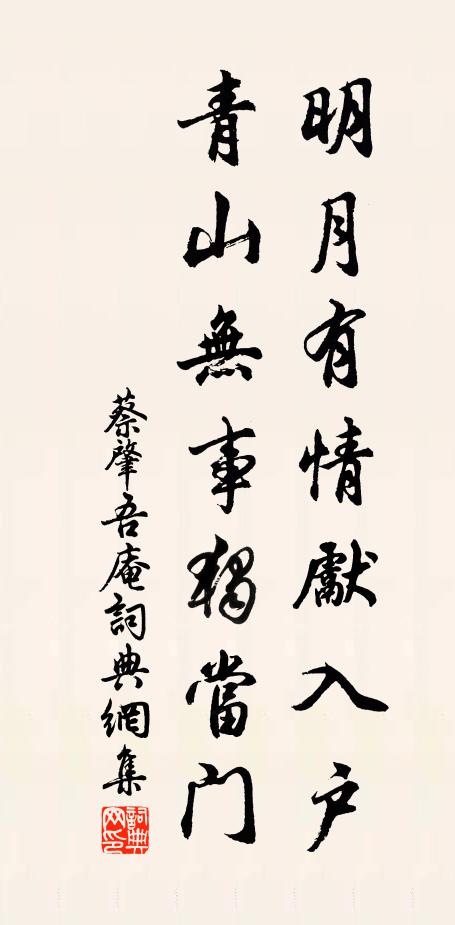 明月有情獻入戶
青山無事獨當門
蔡肇吾庵詞典網集
詞典网印